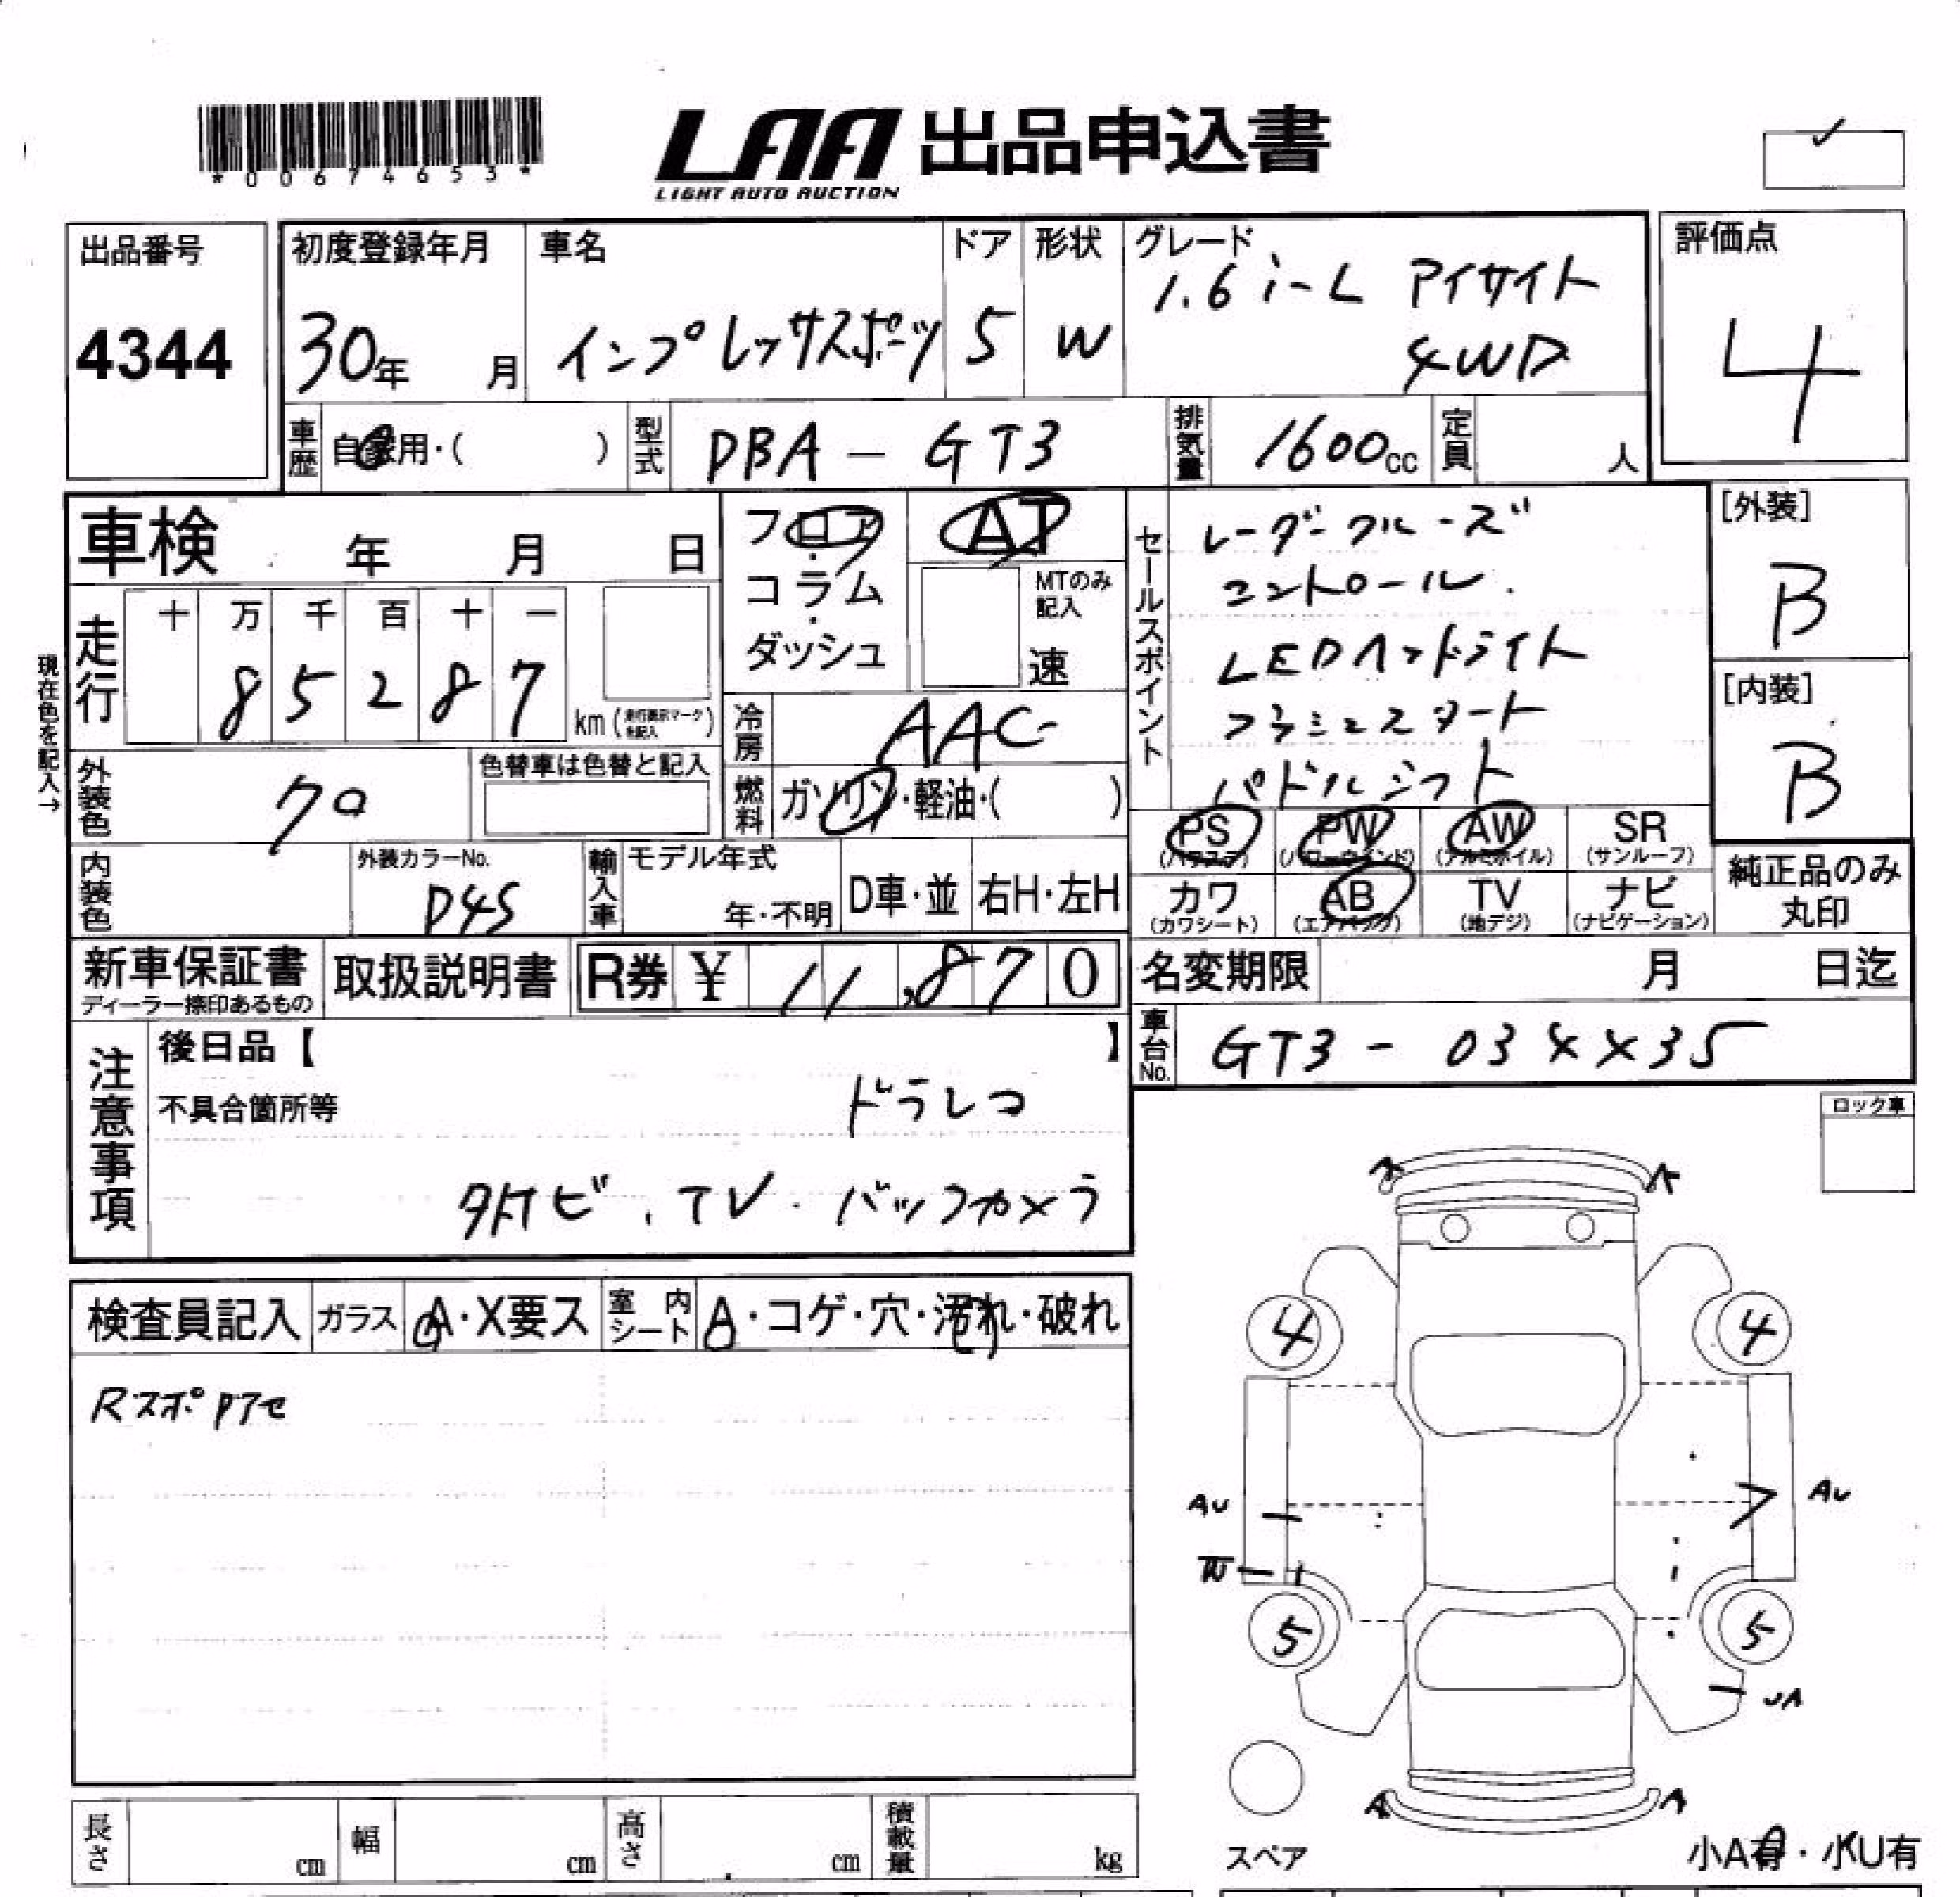 *00674653*
LAA 出品申込書
LIGHT AUTO AUCTION
出品番号
4344
初度登録年月
30年 月
車名
インプレッサスポーツ
ドア
5
形状
W
グレード
1.6 i-L アイサイト
4WD
評価点
4
車歴
自家用・( )
型式
DBA - GT3
排気量
1600cc
定員
人
車検 年 月 日
フロア・コラム・ダッシュ
AT
MTのみ記入
速
セールスポイント
レーダークルーズ
コントロール.
LEDヘッドライト
プッシュスタート
パドルシフト
[外装]
B
[内装]
B
現在色を記入→
走行
十 万 千 百 十 一
8 5 2 8 7
km (走行表示マークを記入)
冷房
AAC
外装色
クロ
色替車は色替と記入
燃料
ガソリン・軽油・( )
PS PW AW SR
(パワステ) (パワーウインド) (アルミホイル) (サンルーフ)
カワ AB TV ナビ
(カワシート) (エアバック) (地デジ) (ナビゲーション)
純正品のみ
丸印
内装色
外装カラーNo.
D4S
輸入車
モデル年式
年・不明
D車・並
右H・左H
新車保証書
ディーラー捺印あるもの
取扱説明書
R券 ¥ 11,870
名変期限 月 日迄
車台No.
GT3 - 03XX35
注意事項
後日品【 】
不具合箇所等
ドラレコ
外ナビ、TV・バックカメラ
ロック車
検査員記入
ガラス
A・X要ス
室内シート
A・コゲ・穴・汚れ・破れ
Rスポ
A A
4 4
AU AU
5 5
UA
A A
スペア
小A有・小U有
長さ cm
幅 cm
高さ cm
積載量 kg